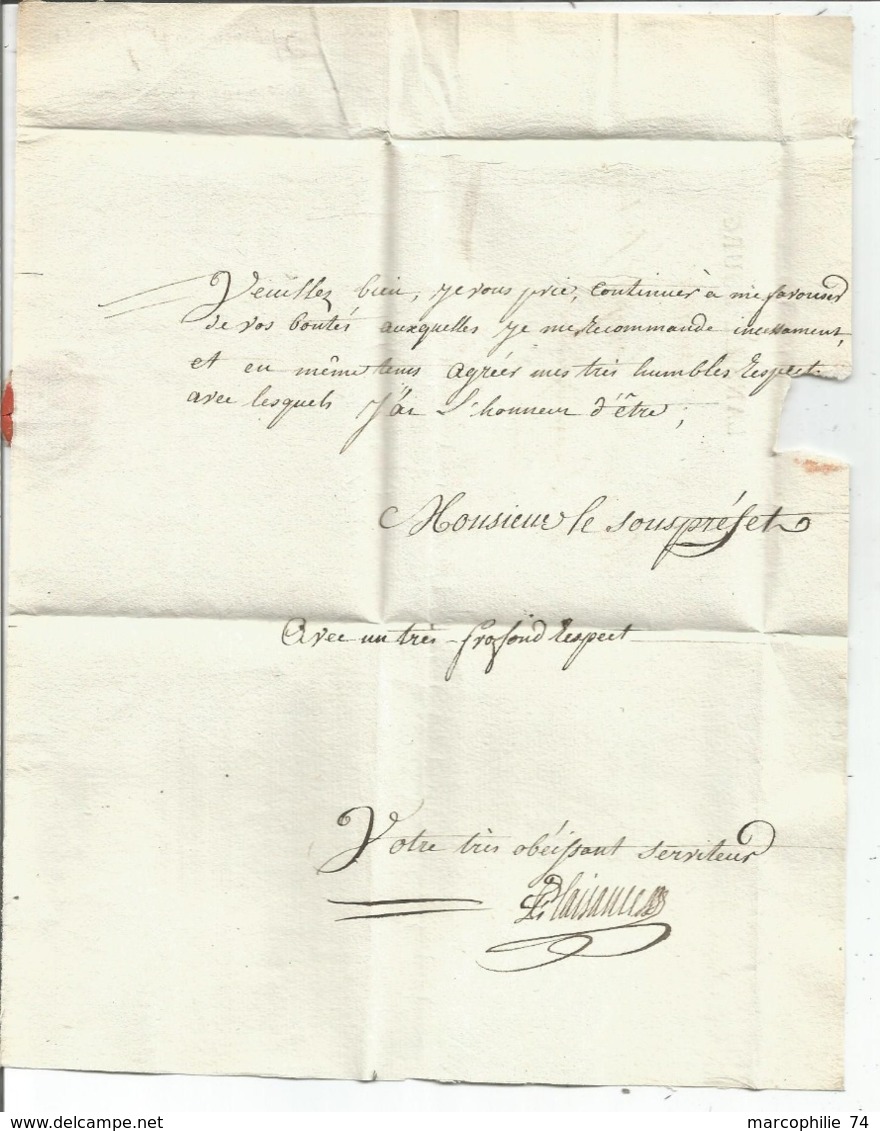 Veuillez bien, je vous prie, continuer à me favoriser
de vos bontés auxquelles je me recommande incessament,
et en même tems agréer mes très humbles respect
avec lesquels j'ai l'honneur d'être,
Monsieur le sous préfet
Avec un très profond respect
Votre très obéissant serviteur
Plaisance
marcophilie 74